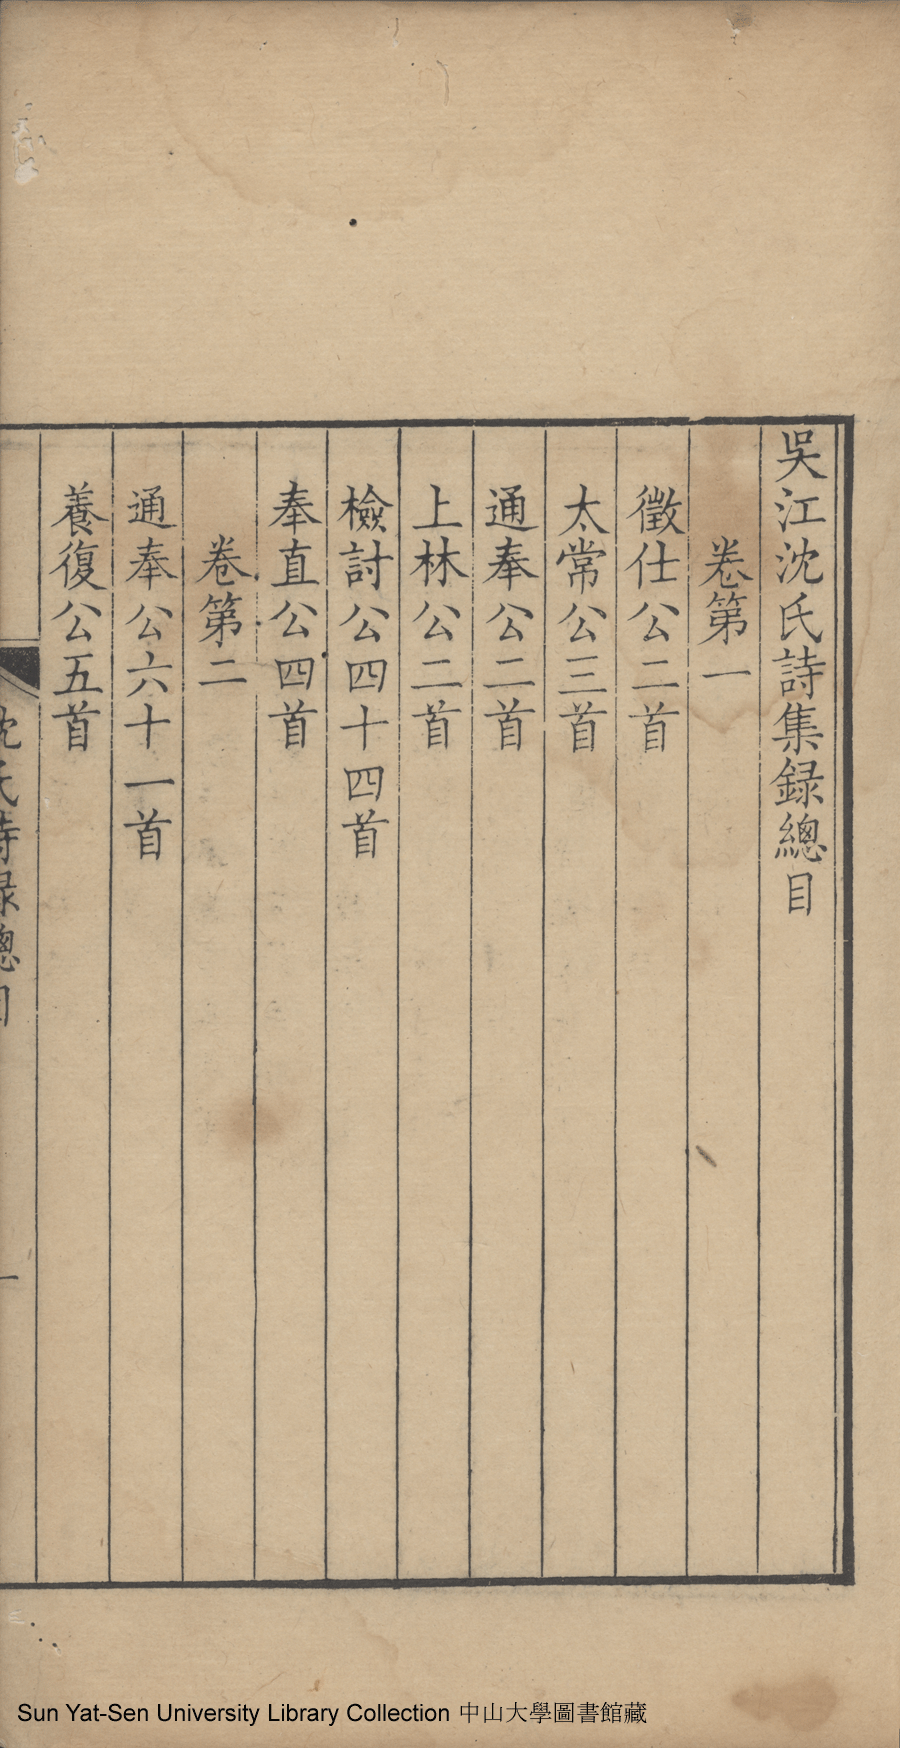 吳江沈氏詩集録總目
卷第一
徵仕公二首
太常公三首
通奉公二首
上林公二首
檢討公四十四首
奉直公四首
卷第二
通奉公六十一首
養復公五首
沈氏詩録總目
一
Sun Yat-Sen University Library Collection 中山大學圖書館藏